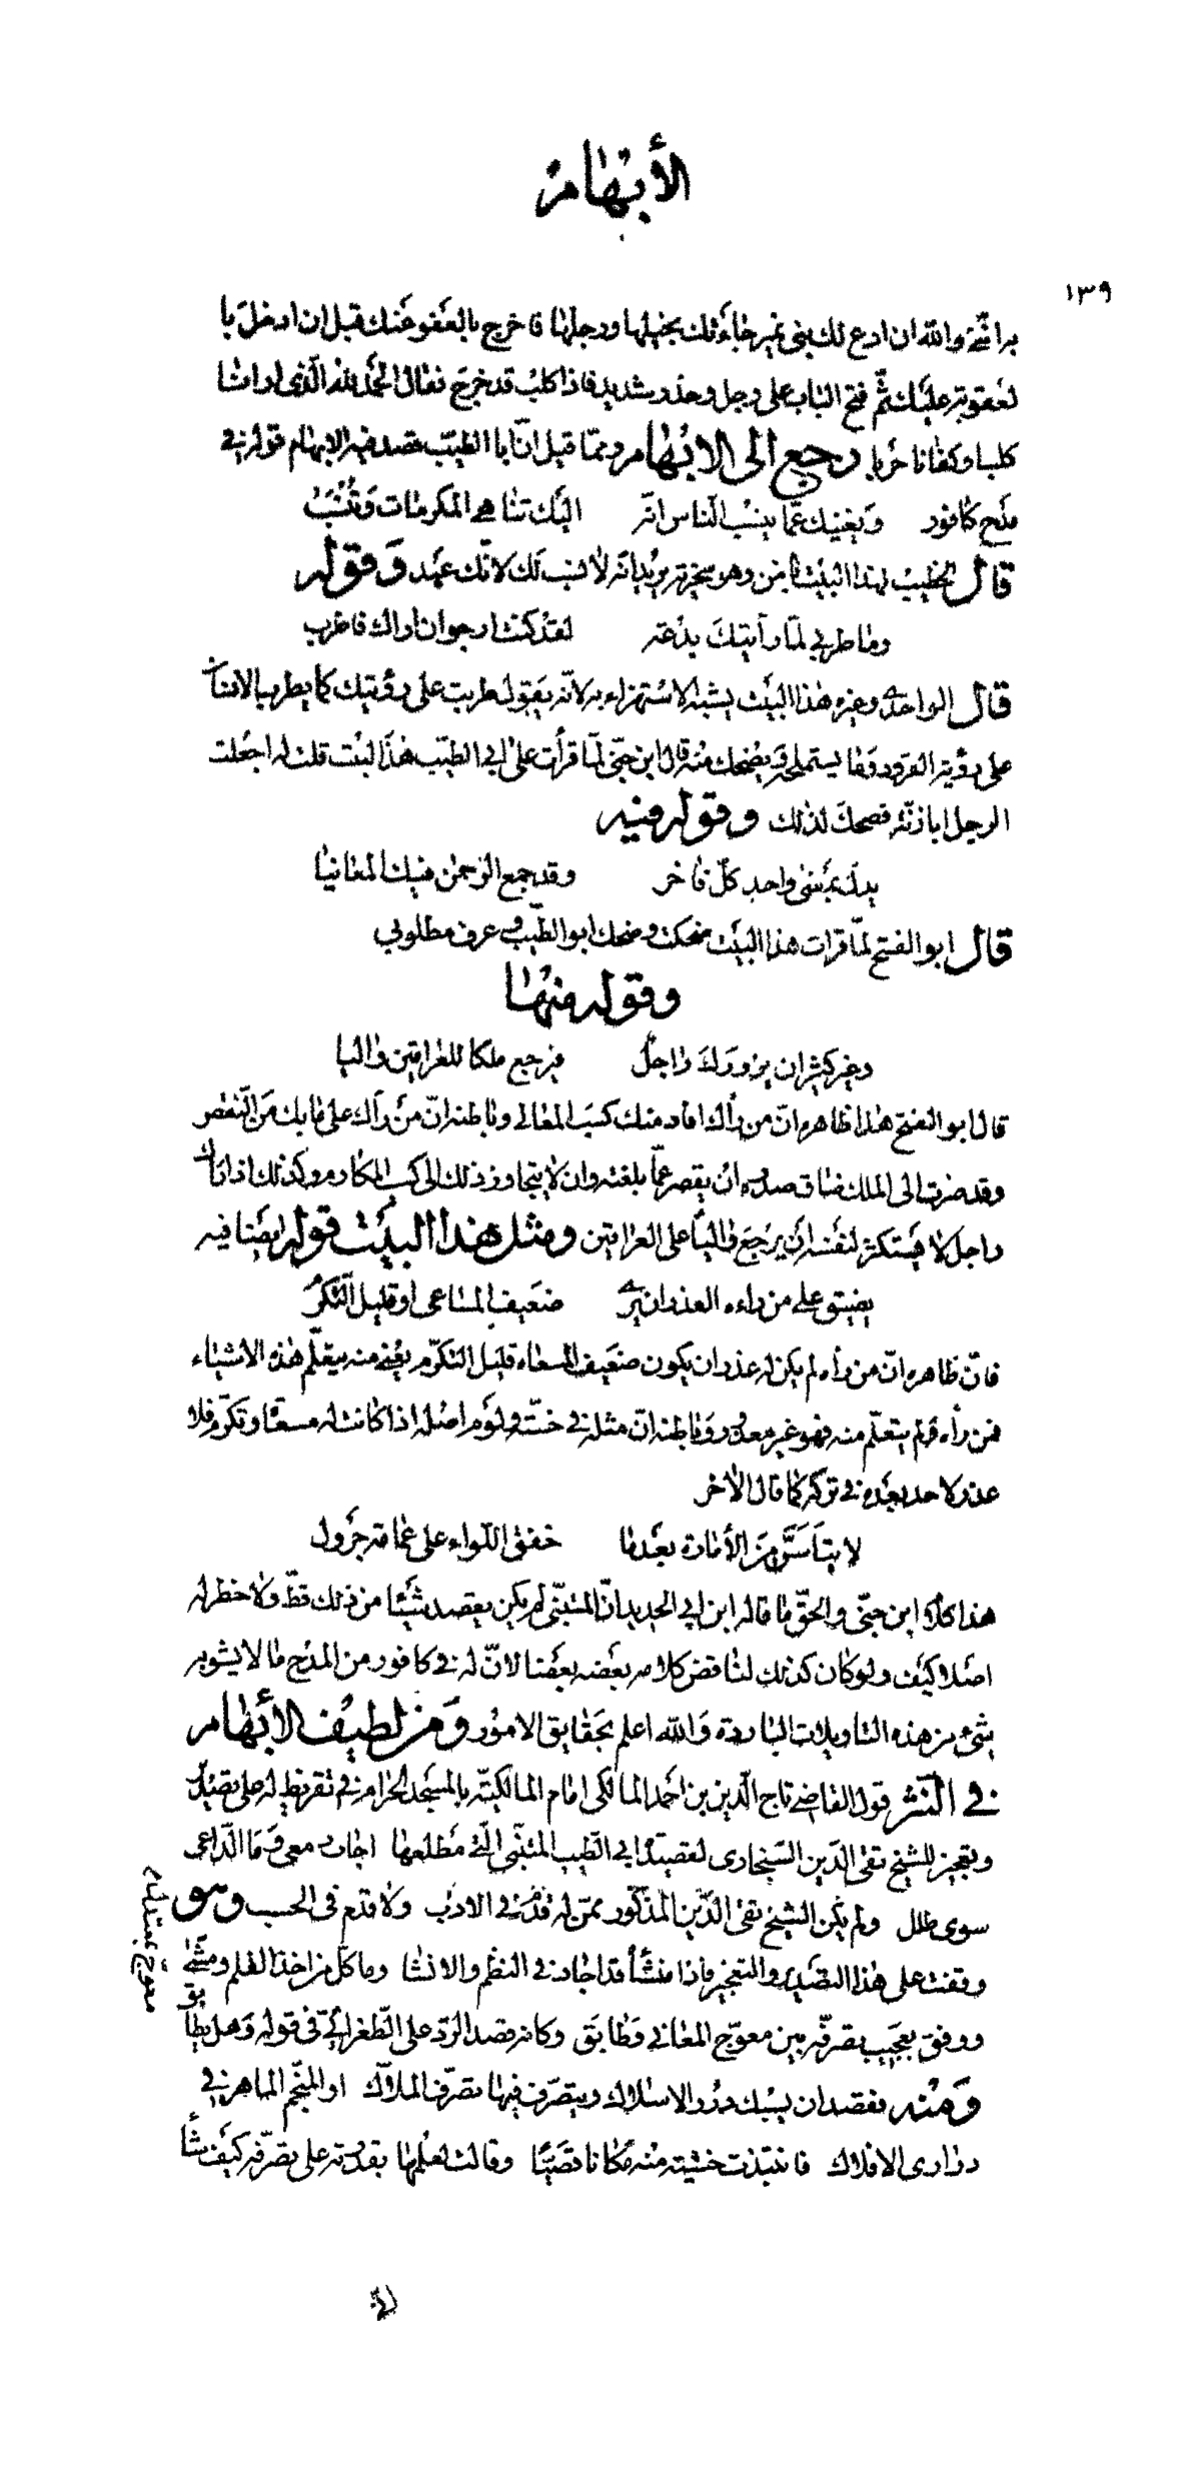 الأبهام
١٣٩
والله ان ادع لك بنى نمير جاءتك بخيلها ورجلها فاخرج بالعفو عنك قبل ان ادخل با
لعقوبة عليك ثمّ فتح الباب على وجل وحذر شديد فاذا كلب قد خرج فقال الحمد لله الّذى
كلبا وكفانا حربا رجع الى الابهام وممّا قيل انّ ابا الطيّب قصد فيه الابهام قوله فى
مدح كافور ويغنيك عمّا ينسب الناس انّه اليك تناهى المكرمات وتنسب
قال الخطيب هذا البيت وهو سخرية يريد انّه لا نسب لك لانّك عبد وقوله
وما طربى لمّا رأيتك بدعة لقد كنت ارجو ان اراك فاطرب
قال الواحدى وغيره هذا البيت يشبه الاستهزاء به لانّه يقول طربت على رؤيتك كما يطرب الانسان
على رؤية القرود وما يستملحه ويضحك منه قال ابن جنّى لمّا قرأت على ابى الطيّب هذا البيت قلت له اجعلت
الرجل ابا زنّة فضحك لذلك وقوله فيه
يدلّ بمعنى واحد كلّ فاخر وقد جمع الرحمن فيك المعانيا
قال ابو الفتح لمّا قرات هذا البيت ضحكت وضحك ابو الطيّب وعرف مطلوبى
وقوله منها
وغير كثير ان يزورك راجل فيرجع ملكا للعراقين واليا
قال ابو الفتح هذا ظاهره انّ من رأك افاد منك كسب المعالى وباطنه انّ من رآك على ما بك من النقص
وقد صرت الى الملك ضاق صدره ان يقصر عمّا بلغته وان لا يتجاوز ذلك الى كسب المكارم وكذلك اذا رآك
راجل لا يستكثر لنفسه ان يرجع واليا على العراقين ومثل هذا البيت قوله ايضا فيه
يضيق على من راءه العذر ان يرى ضعيف المساعى او قليل التكرّم
فانّ ظاهره انّ من رأه لم يكن له عذر ان يكون ضعيف المسعاه قليل التكرّم يعنى منه يتعلّم هذه الاشياء
فمن رأه ولم يتعلّم منه فهو غير معذور وباطنه انّ مثله فى خسّته ولؤم اصله اذا كانت له مسعاة وتكرّم فلا
عذر لاحد بعده فى تركه كما قال الاخر
لا تيأسنّ من الأمارة بعدما خفق اللواء على عمامة جرول
هذا كلام ابن جنّى والحقّ ما قاله ابن ابى الحديد انّ المتنبّى لم يكن يقصد شيئا من ذلك قطّ ولا خطر له
اصلا كيف ولو كان كذلك لناقض كلامه بعضه بعضا لانّ له فى كافور من المدح ما لا يشوبه
شئ من هذه التاويلات الباردة والله اعلم بحقايق الامور ومن لطيف الأبهام
فى النثر قول القاضى تاج الّدين بن احمد المالكى امام المالكيّة بالمسجد الحرام فى تقريظ له على تصدير
وتعجيز للشيخ تقى الدّين السّنجارى لقصيدة ابى الطّيب المتنبّى الّتى مطلعها اجاب دمعى وما الدّاعى
سوى طلل ولم يكن الشيخ تقى الدّين المذكور ممّن له قدم فى الادب ولا قدم فى الحسب وهو
وقفت على هذا التصدير والتعجيز فاذا منشأ قد اجاد فى النظم والانشا وما كلّ من اخذ القلم ومشّى
ووفق بعجيب تصرفّه بين معوّج المعانى وطابق وكانه قصد الردّ على الطّغرائى فى قوله وهل يطابق
معوجّ بمعتدل
ومنه فقصد ان يسبك درر الاسلاك ويتصرّف فيها تصرّف الملاّك او المنجّم الماهر فى
درارى الافلاك فانتبذت خشيته منه مكانا قصيّا وقالت لعلمها بقدرته على تصرّفه كيف شأ